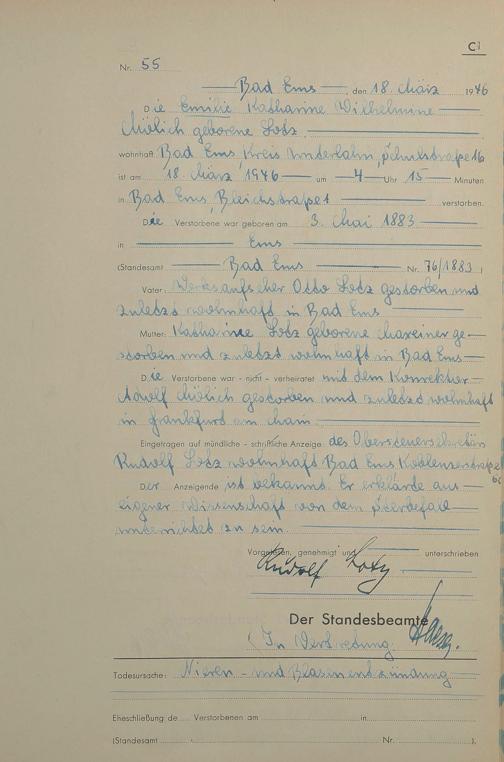 C1
Nr. 55
Bad Ems, den 18. März 1946
Die Emilie Katharine Wilhelmine
geborene Lotz
wohnhaft Bad Ems, Kreis Unterlahn, Schulstraße 16
ist am 18. März 1946 um 4 Uhr 15 Minuten
in Bad Ems, Bleichstraße 1 verstorben.
Die Verstorbene war geboren am 3. Mai 1883
in Ems
(Standesamt Bad Ems Nr. 76/1883)
Vater: Werksaufseher Otto Lotz gestorben und
zuletzt wohnhaft in Bad Ems
Mutter: Katharine Lotz geborene ge-
storben und zuletzt wohnhaft in Bad Ems
Die Verstorbene war - nicht - verheiratet mit dem Konrektor
Adolf gestorben und zuletzt wohnhaft
in Frankfurt am Main.
Eingetragen auf mündliche - schriftliche Anzeige des Obersteuersekretärs
Rudolf Lotz wohnhaft Bad Ems Koblenzerstraße
Der Anzeigende ist bekannt. Er erklärte aus
eigener Wissenschaft von dem Sterbefall
unterrichtet zu sein.
Vorgelesen, genehmigt und unterschrieben
Rudolf Lotz
Der Standesbeamte
(In Vertretung.
Todesursache: Nieren- und Blasenentzündung
Eheschließung de Verstorbenen am in
(Standesamt Nr. ).